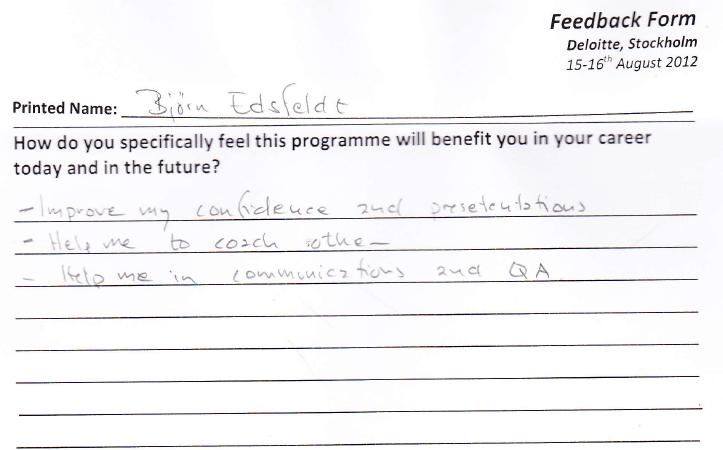 Feedback Form
Deloitte, Stockholm
15-16th August 2012
Printed Name: Björn Edsfeldt
How do you specifically feel this programme will benefit you in your career
today and in the future?
- Improve my confidence and presetentations
- Help me to coach othe
- Help me in communications and QA